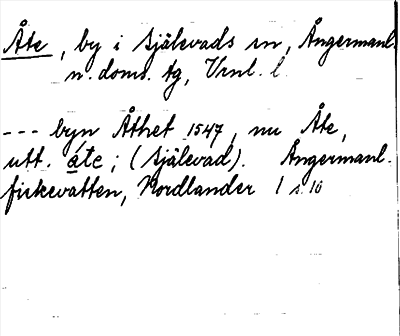 Åte, by i Själevads sn, Ångermanl.
n. doms. tg, Vrnl. l.
--- byn Åthet 1547, nu Åte,
utt. áte; (Själevad). Ångermanl.
fiskevatten, Nordlander 1 s. 10